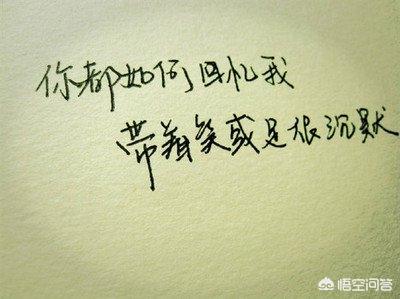 你都如何回忆我
带着笑或是很沉默
悟空问答